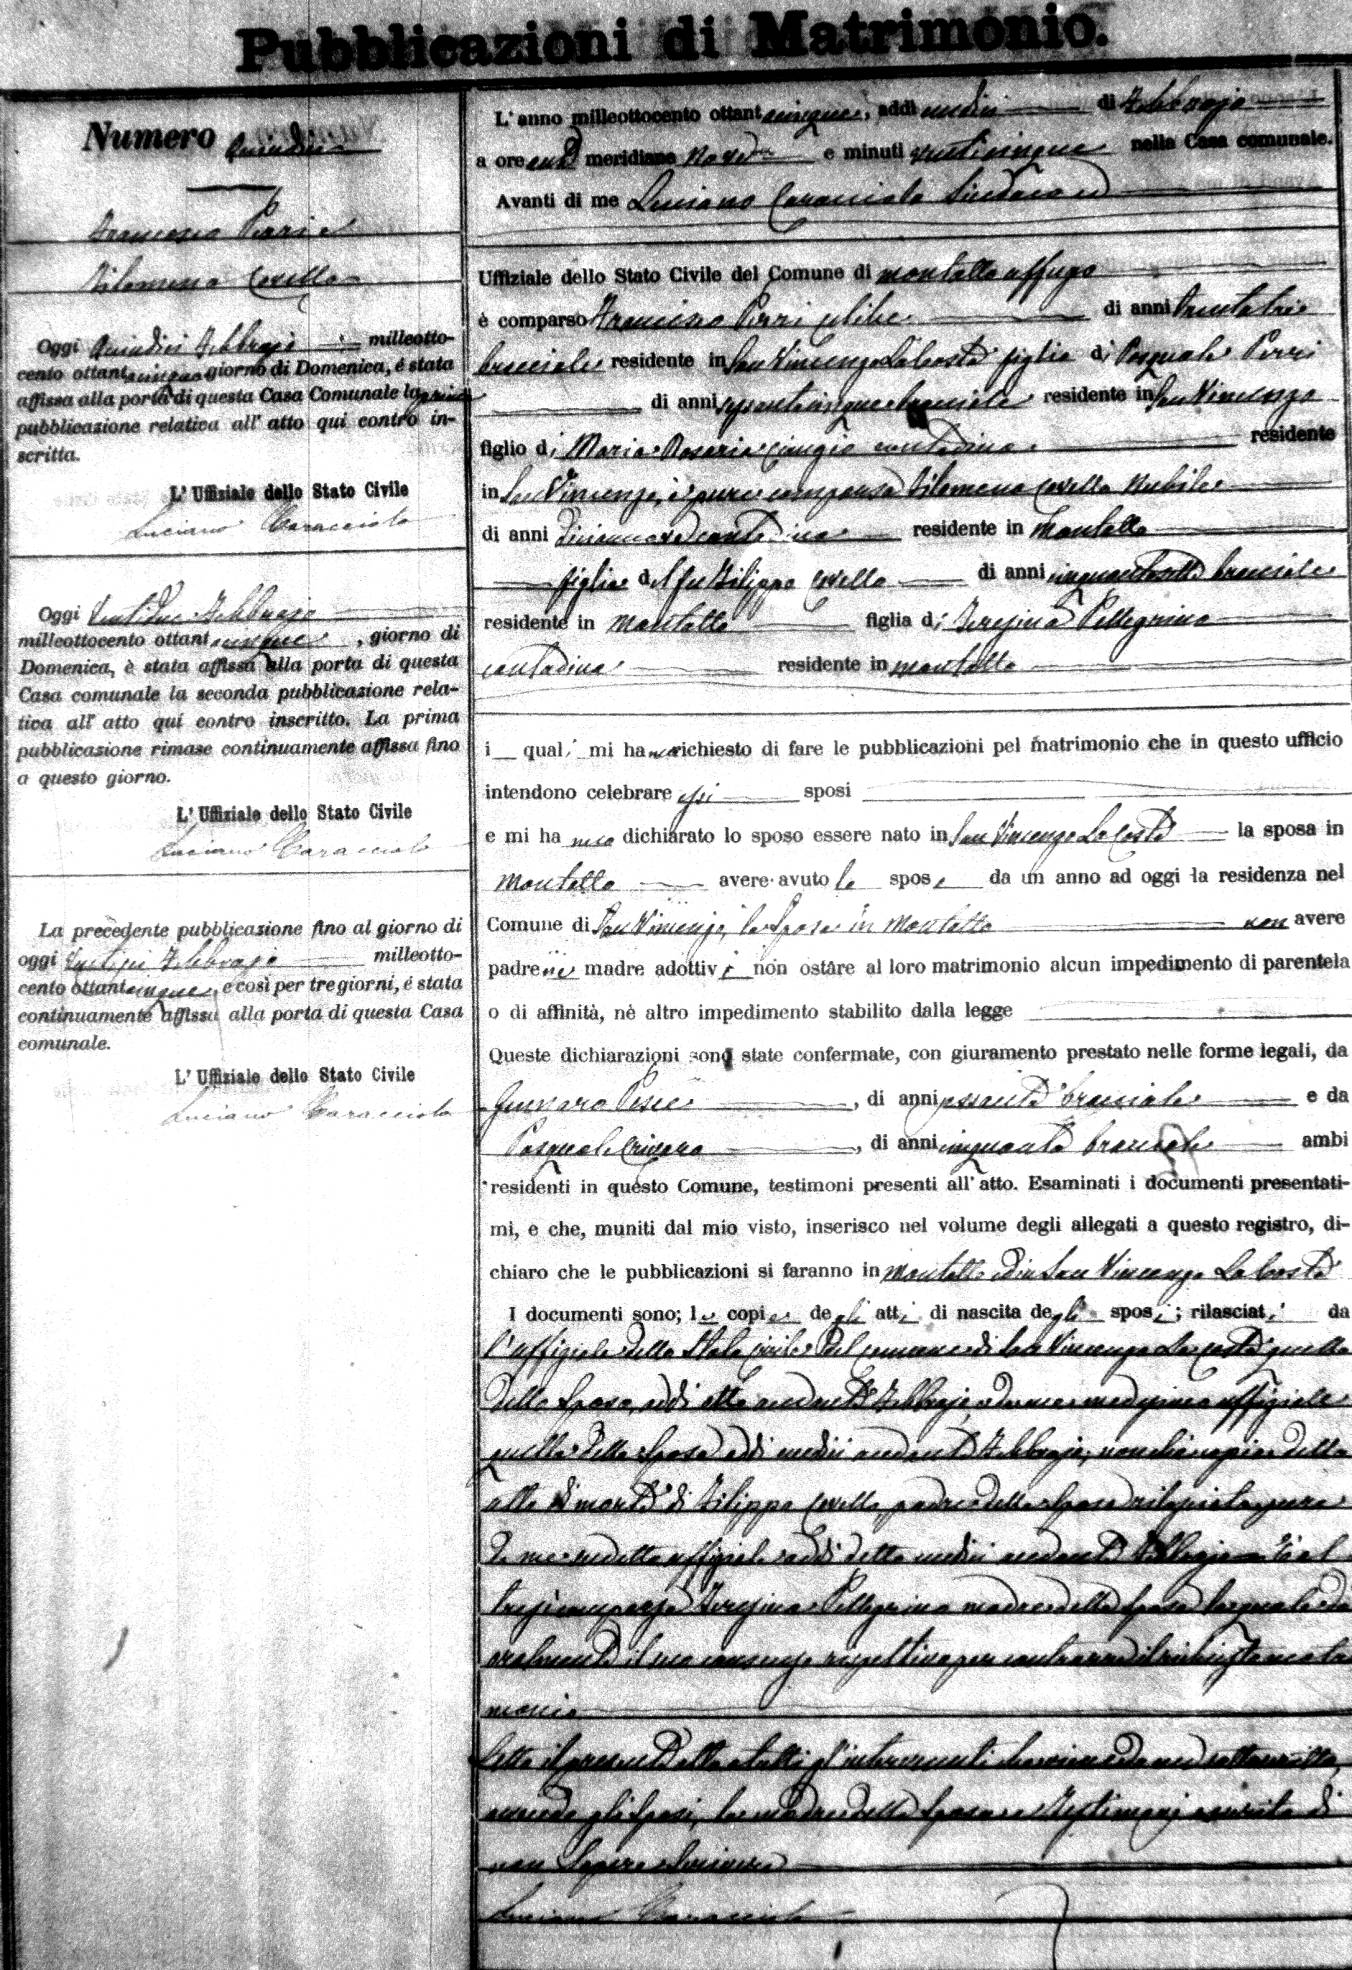 Pubblicazioni di Matrimonio.
Numero Quindici
Francesco Perri e
Filomena Covello
Oggi Quindici Febbrajo milleotto-
cento ottantacinque giorno di Domenica, é stata
affissa alla porta di questa Casa Comunale la prima
pubblicazione relativa all' atto qui contro in-
scritta.
L' Uffiziale dello Stato Civile
Luciano Caracciolo
Oggi Ventidue Febbrajo
milleottocento ottantacinque, giorno di
Domenica, è stata affissa alla porta di questa
Casa comunale la seconda pubblicazione rela-
tiva all' atto qui contro inscritto. La prima
pubblicazione rimase continuamente affissa fino
a questo giorno.
L' Uffiziale dello Stato Civile
Luciano Caracciolo
La precedente pubblicazione fino al giorno di
oggi Febbrajo milleotto-
cento ottantacinque, e così per tre giorni, é stata
continuamente affissa alla porta di questa Casa
comunale.
L' Uffiziale dello Stato Civile
Luciano Caracciolo
L' anno milleottocento ottantacinque, addì undici di Febbrajo
a ore anti meridiane nove e minuti venticinque nella Casa comunale.
Avanti di me Luciano Caracciolo Sindaco
Uffiziale dello Stato Civile del Comune di Montalto Uffugo
è comparso Francesco Perri celibe di anni trentatrè
bracciale residente in San Vincenzo La Costa figlio di Pasquale Perri
di anni sessantacinque bracciale residente in San Vincenzo
figlio di Maria Rosaria contadina residente
in San Vincenzo, è pure comparsa Filomena Covello nubile
di anni diciannove contadina residente in Montalto
figlia del fu Filippo Covello di anni cinquantasette bracciale
residente in Montalto figlia di Teresina Pellegrino
contadina residente in Montalto
i quali mi hanno richiesto di fare le pubblicazioni pel matrimonio che in questo ufficio
intendono celebrare essi sposi
e mi hanno dichiarato lo sposo essere nato in San Vincenzo La Costa la sposa in
Montalto avere avuto lo sposo da un anno ad oggi la residenza nel
Comune di San Vincenzo, la sposa in Montalto non avere
padre nè madre adottivi non ostare al loro matrimonio alcun impedimento di parentela
o di affinità, nè altro impedimento stabilito dalla legge
Queste dichiarazioni sono state confermate, con giuramento prestato nelle forme legali, da
Gennaro Pesce, di anni sessanta bracciale e da
Pasquale Crivaro, di anni cinquanta bracciale ambi
residenti in questo Comune, testimoni presenti all' atto. Esaminati i documenti presentati-
mi, e che, muniti dal mio visto, inserisco nel volume degli allegati a questo registro, di-
chiaro che le pubblicazioni si faranno in Montalto ed in San Vincenzo La Costa
I documenti sono; le copie degli atti di nascita degli sposi; rilasciati da
l'uffiziale dello Stato Civile del comune di San Vincenzo La Costa quella
dello sposo, addì otto andante Febbrajo, e da me medesimo uffiziale
quella della sposa addì undici andante Febbrajo, nonchè copia della
atto di morte di Filippo Covello padre della sposa rilasciata pure
da me sudetto uffiziale addì detto undici andante Febbrajo
comparsa Teresina Pellegrino madre della sposa la quale dà
oralmente il suo consenso rispettivo per contrarre il richiesto matri
monio
Letto il presente atto a tutti gl'intervenuti da me sottoscritto,
avendo gli sposi, la madre della sposa e Testimonj asserito di
non sapere scrivere
Luciano Caracciolo